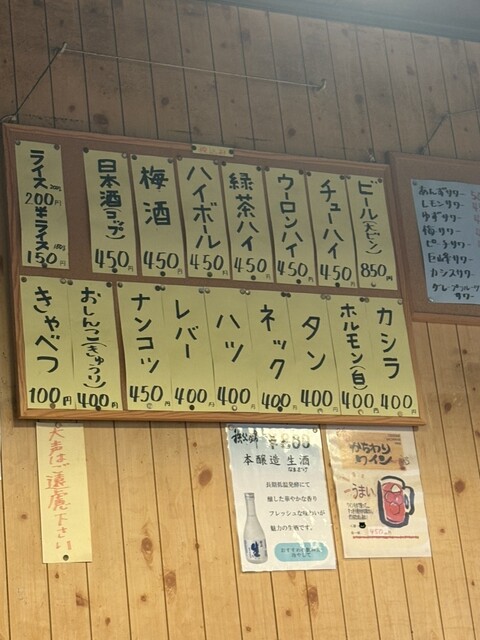 ビール(大ビン) 850円
チューハイ 450円
ウーロンハイ 450円
緑茶ハイ 450円
ハイボール 450円
梅酒 450円
日本酒(コップ) 450円
ライス 200円
半ライス 150円
カシラ 400円
ホルモン(白) 400円
タン 400円
ネック 400円
ハツ 400円
レバー 400円
ナンコツ 450円
おしんこ(きゅうり) 400円
きゃべつ 100円
あんずサワー
レモンサワー
ゆずサワー
梅サワー
ピーチサワー
巨峰サワー
カシスサワー
グレープフルーツ
サワー
大声はご遠慮下さい
本醸造 生酒
長期低温発酵にて
醸した華やかな香り
フレッシュな味わいが
魅力の生酒です。
からわり
ワイン
うまい